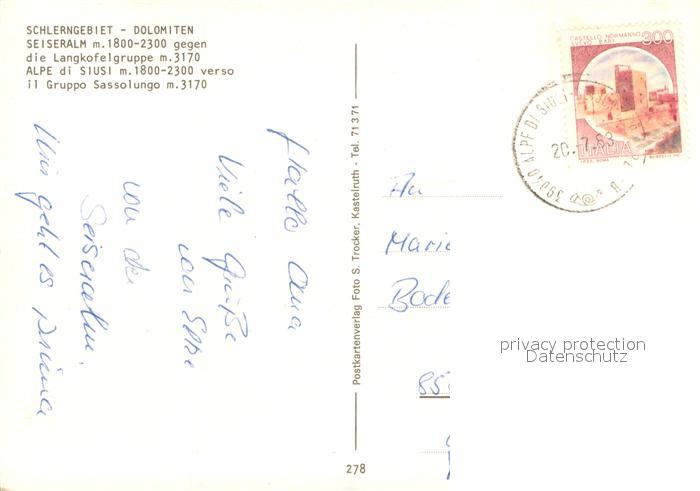 SCHLERNGEBIET - DOLOMITEN
SEISERALM m.1800-2300 gegen
die Langkofelgruppe m.3170
ALPE di SIUSI m.1800-2300 verso
il Gruppo Sassolungo m.3170
Hallo
Viele Grüße
von
von der
Seiseralm.
Uns geht es prima
Postkartenverlag Foto S. Trocker, Kastelruth - Tel. 71371
278
CASTELLO NORMANNO
SVEVO BARI
300
ITALIA
39040 ALPE DI SIUSI
20.-7.83
An
Marie
Bode
85
privacy protection
Datenschutz